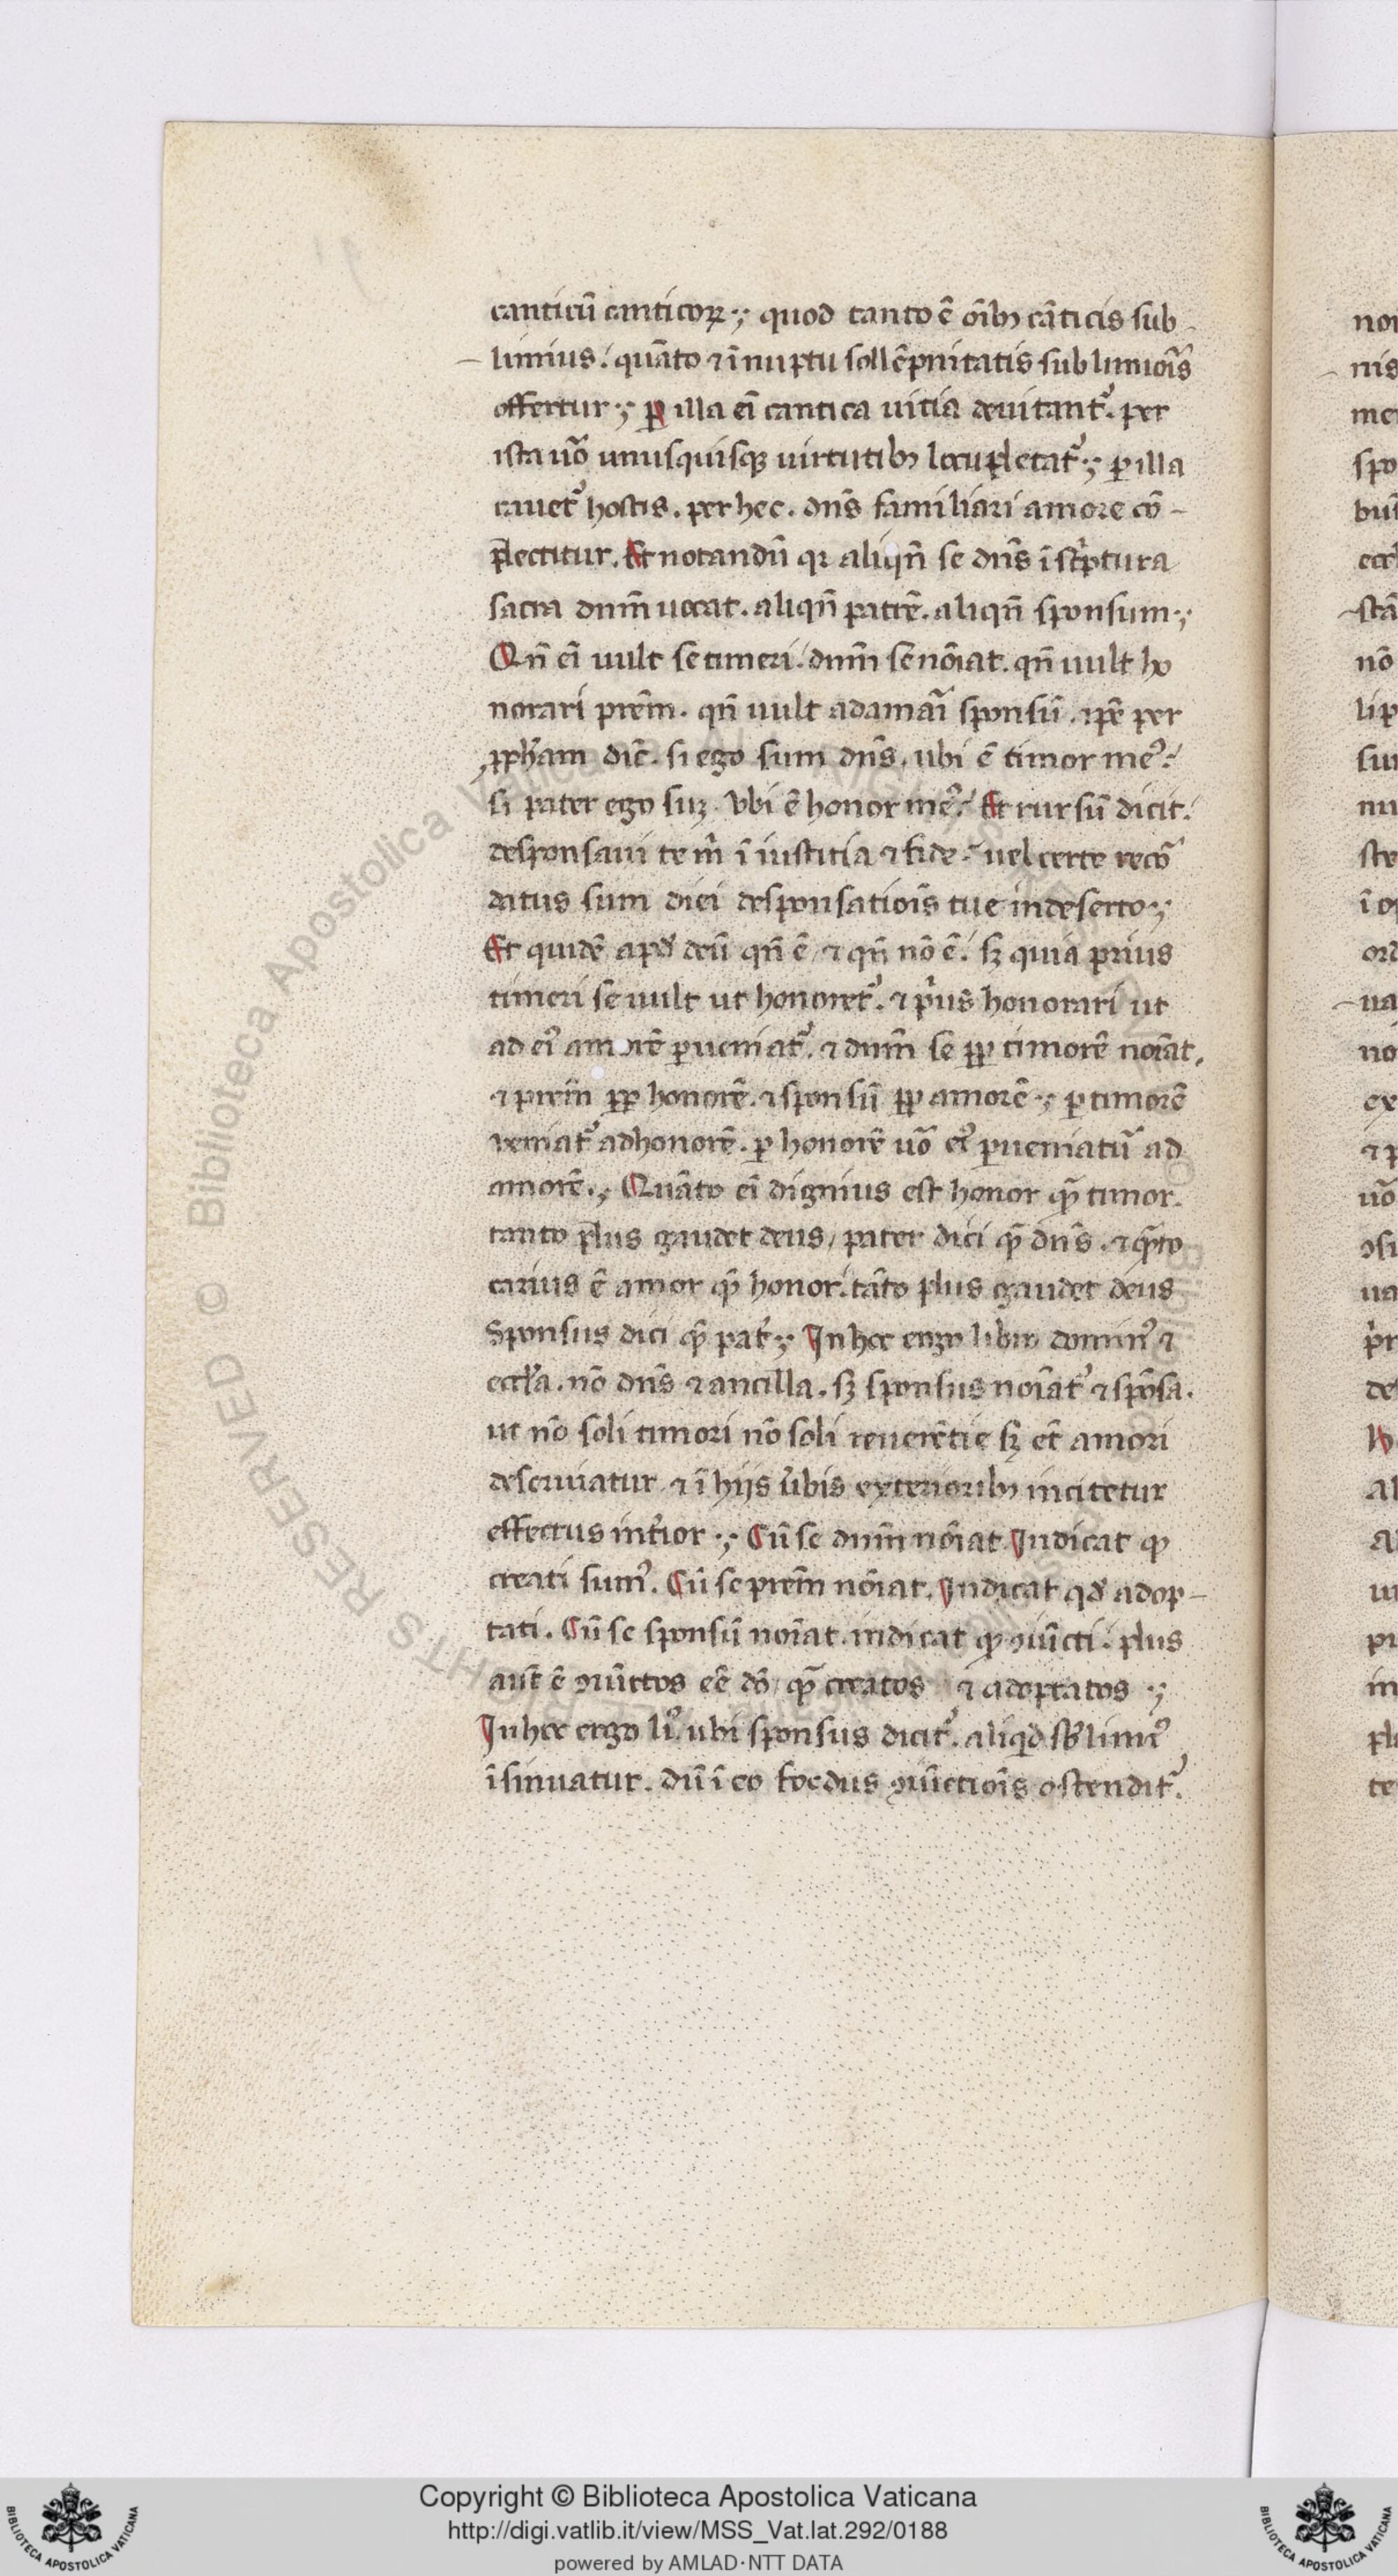 canticū canticoꝝ ·ɣ quod tanto ē oĩbȝ cāticis sub
limius. quāto ⁊ ī nuptu sollēpnitatis sublimioīs
offertur ·ɣ ꝑ illa eī cantica uitia deuitant᷒. per
ista uō unusquisqꝫ uirtutibȝ locupletat᷒ ·ɣ ꝑ illa
cauet᷒ hostis. per hec. dn̄s familiari amore cō-
plectitur. Et notandū qꝛ aliqn̄ se dn̄s ī sc̄ptura
sacra dnm̄ uocat. aliqn̄ patrē. aliqn̄ sponsum ·ɣ
Qn̄ eī uult se timeri. dnm̄ se nōīat. qn̄ uult ho
norari prēm. qn̄ uult adamaī sponsū. ip̄e per
ꝓph̄am dic̄. si ego sum dn̄s. ubi ē timor me᷒.
si pater ego suꝫ. vbi ē honor me᷒. Et rursū dicit.
desponsaui te m̄ ī iusticia ⁊ fide. uel certe recō
datus sum diei desponsatiōis tue in deserto ·ɣ
Et quidē apd̄ deū qn̄ ē, ⁊ qn̄ nō ē. sꝫ quia prius
timeri se uult ut honoret᷒. ⁊ p̄us honorari ut
ad ei᷒ amorē ꝑueniat᷒. ⁊ dnm̄ se ꝓp timorē noīat.
⁊ prēm ꝓp honorē. ⁊ sponsū ꝓp amorē ·ɣ ꝑ timorē
veniat᷒ ad honorē. ꝑ honorē uō ei᷒ ꝑueniatū ad
amorē ·ɣ Quāto eī dignius est honor qꝫ̄ timor.
tanto plus gaudet deus, pater dici qꝫ̄ dn̄s. ⁊ qꝫ̄to
carius ē amor qꝫ̄ honor. tāto plus gaudet deus
Sponsus dici qꝫ̄ pat̄ ·ɣ In hoc ergo libro domin᷒ ⁊
eccl̄a. nō dn̄s ⁊ ancilla. sꝫ sponsus noīat᷒ ⁊ spōsa.
ut nō soli timori nō soli reuerētie sꝫ et̄ amori
deseruiatur. ⁊ ī hijs ūbis exterioribȝ incitetur
effectus int̄ior ·ɣ Cū se dnm̄ nōīat Indicat qꝫ
creati sum᷒. Cū se prēm nōīat. Indicat qd̄ adop-
tati. Cū se sponsū noīat. indicat qꝫ ꝯiūcti. plus
aut̄ ē ꝯiūctos eē dō, qꝫ̄ creatos ⁊ adoptatos ·ɣ
In hoc ergo li᷒. ubi sponsus dicit᷒. aliqd̄ sb̄limi᷒
īsinuatur. dū ī eo foedus ꝯiūctiōis ostendit᷒.
Copyright © Biblioteca Apostolica Vaticana
http://digi.vatlib.it/view/MSS_Vat.lat.292/0188
powered by AMLAD·NTT DATA